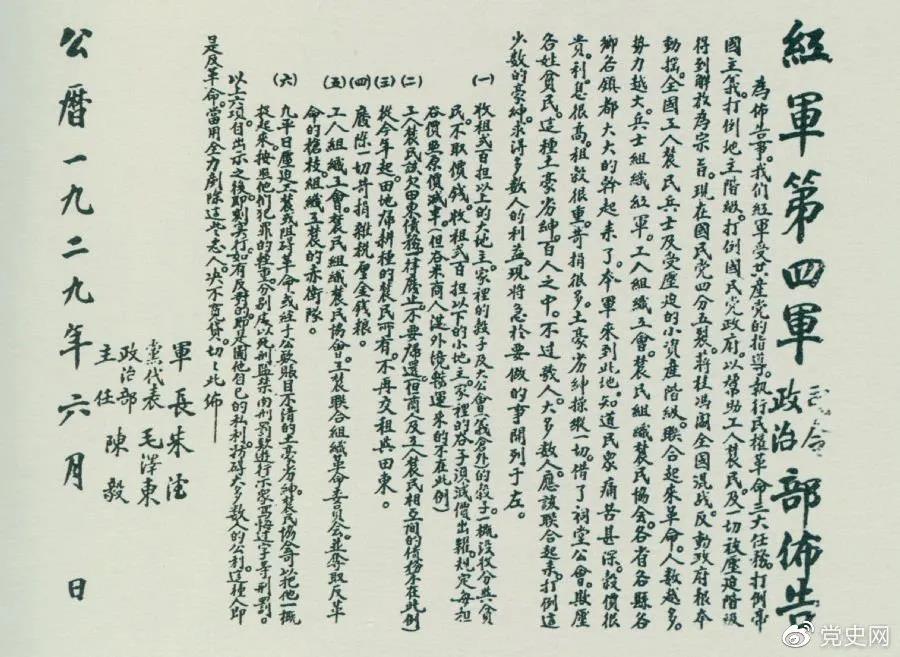 紅軍第四軍司令政治部佈告
為佈告事。我們紅軍受共產黨的指導。執行民權革命三大任務。打倒帝
國主義。打倒地主階級。打倒國民党政府。以幫助工人農民及一切被壓迫階級
得到解放為宗旨。現在國民黨四分五裂。蔣桂馮閻全國混战。反動政府根本
動搖。全國工人農民兵士及受壓迫的小資產階級。聯合起來革命。人數越多。
势力越大。兵士組織紅軍。工人組織工會。農民組織農民協会。各省各縣各
鄉各鎮都大大的幹起来了。本軍来到此地。知道民眾痛苦甚深。穀價很
貴。利息很高。租穀很重。苛捐很多。土豪劣紳操縱一切。借了祠堂公會。欺壓
各姓貧民。這種土豪劣紳。百人之中。不过数人。大多数人。應該联合起来。打倒這
少数的豪紳。求得多数人的利益。現將急於要做的事開列于左。
(一)收租弍百担以上的大地主。家裡的穀子及大公會(義倉外)的穀子一概沒收分與貧
民。不取價钱。收租弍百担以下的小地主。家裡的谷子須減價出糶。規定每担
谷價照原價減半。(但谷米商人從外境輸運来的不在此例)
(二)工人農民該欠田東債務一律廢止。不要歸還。(但商人及工人農民相互間的債務不在此例)
(三)從今年起。田地歸耕種的農民所有。不再交租與田東。
(四)廢除一切苛捐雜税厘金錢粮。
(五)工人組織工會。農民組織農民協會。工農联合組織革命委員会。並奪取反革
命的槍枝組織工農的赤衛隊。
(六)九平日壓迫工農或阻碍革命。或經手公款賬目不清的土豪劣紳。農民協会可以把他一概
捉起来。按照他们犯罪的轻重。分别處以死刑監禁肉刑罰款遊行示眾寫悔过字等刑罰。
以上六項自出示之後即刻实行。如有反對的。即是圖他自己的私利。妨碍大多数人的公利。這種人即
是反革命。當用全力剷除這些惡人。决不寬貸。切切此佈——
軍長朱德
黨代表毛澤東
政治部主任陳毅
公曆一九二九年六月 日
党史网